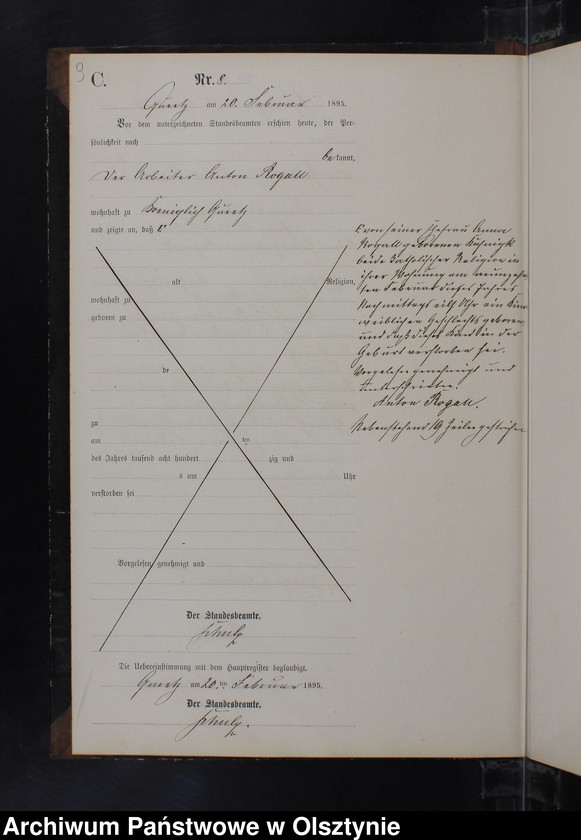 9
C.
Nr. 8.
Gueetz am 20. Februar 1895.
Vor dem unterzeichneten Standesbeamten erschien heute, der Per-
sönlichkeit nach
bekannt,
Der Arbeiter Anton Rogall
wohnhaft zu Koeniglich Gueetz
und zeigte an, daß Γ
alt Religion,
wohnhaft zu
geboren zu
de
zu
am ten
des Jahres tausend acht hundert zig und
s um Uhr
verstorben sei
Vorgelesen, genehmigt und
Der Standesbeamte.
Schulz
Die Uebereinstimmung mit dem Hauptregister beglaubigt.
Gueetz am 20. ten Februar 1895.
Der Standesbeamte.
Schulz.
Γ von seiner Ehefrau Anna
Rogall geborenen
beide katholischer Religion in
ihrer Wohnung am neunzehn
ten Februar dieses Jahres
Nachmittags eilf Uhr ein Kind
weiblichen Geschlechts geboren
und daß dieses Kind in der
Geburt verstorben sei.
Vorgelesen genehmigt und
unterschrieben.
Anton Rogall.
Nebenstehend 19 Zeilen gestrichen
Archiwum Państwowe w Olsztynie